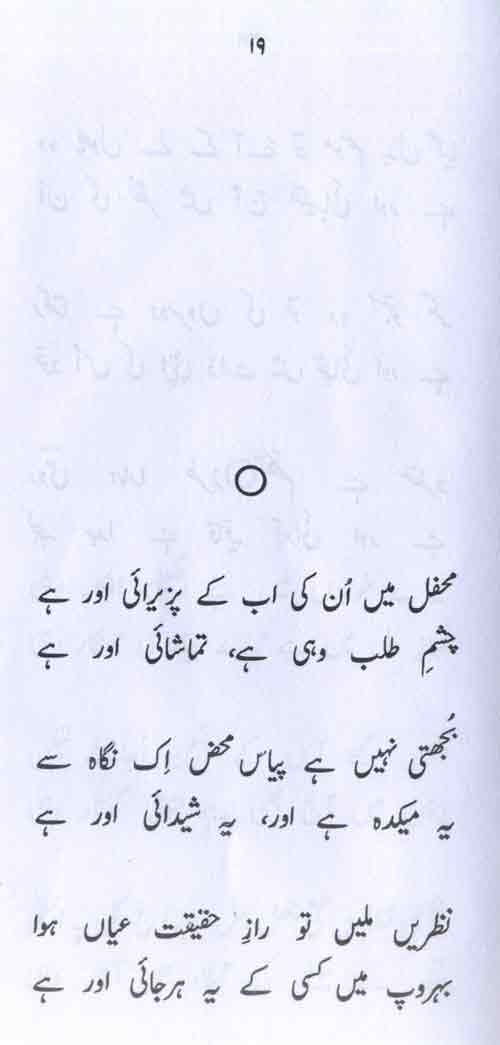 ۱۹
محفل میں اُن کی اب کے پزیرائی اور ہے
چشمِ طلب وہی ہے، تماشائی اور ہے
بُجھتی نہیں ہے پیاس محض اِک نگاہ سے
یہ میکدہ ہے اور، یہ شیدائی اور ہے
نظریں ملیں تو رازِ حقیقت عیاں ہوا
بہروپ میں کسی کے یہ ہرجائی اور ہے